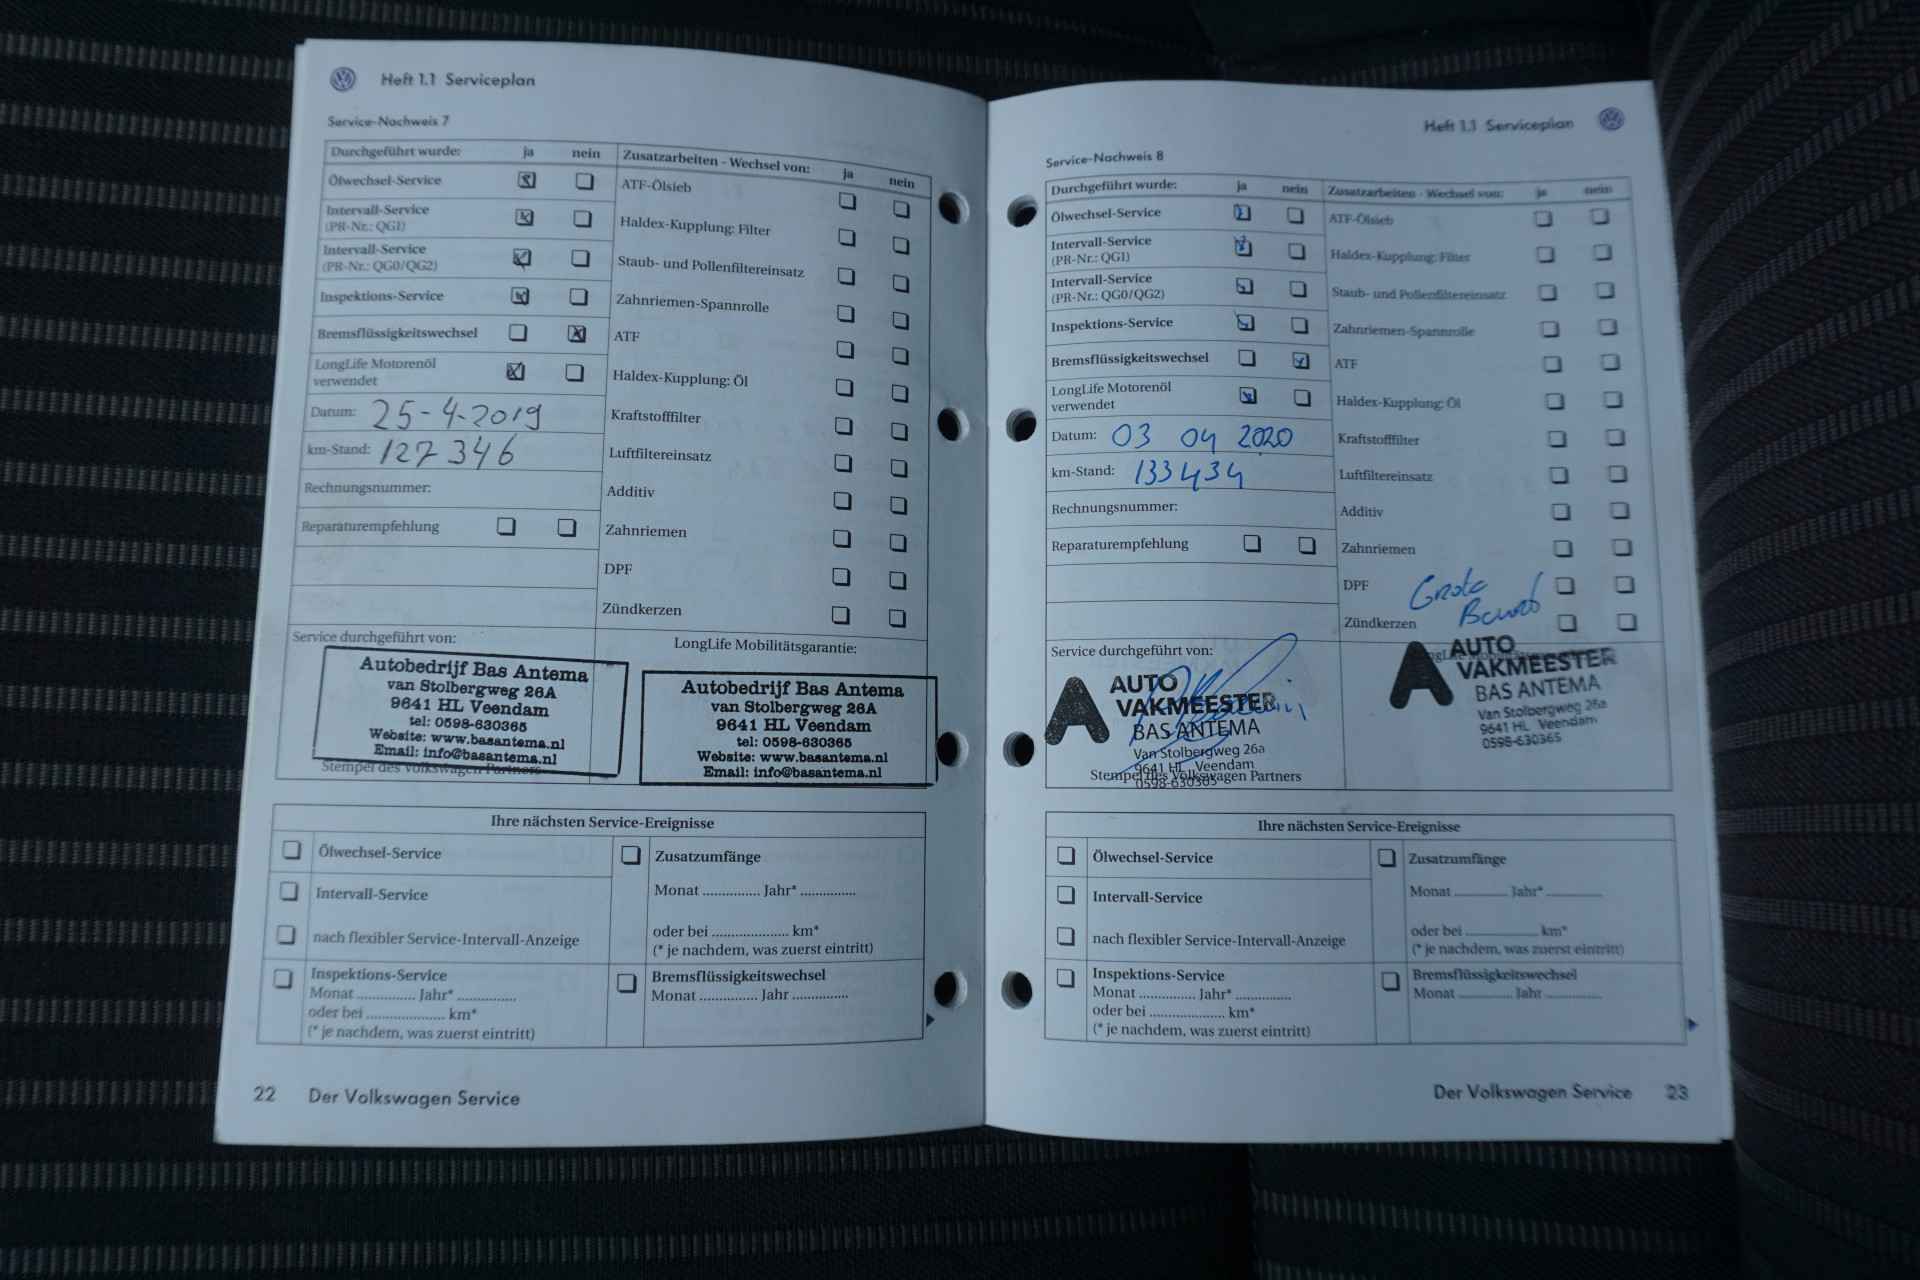 Heft 1.1 Serviceplan
Service-Nachweis 7
Durchgeführt wurde: ja nein
Ölwechsel-Service
Intervall-Service
(PR-Nr.: QG1)
Intervall-Service
(PR-Nr.: QG0/QG2)
Inspektions-Service
Bremsflüssigkeitswechsel
LongLife Motorenöl
verwendet
Datum: 25-4-2019
km-Stand: 127 346
Rechnungsnummer:
Reparaturempfehlung
Zusatzarbeiten - Wechsel von: ja nein
ATF-Ölsieb
Haldex-Kupplung: Filter
Staub- und Pollenfiltereinsatz
Zahnriemen-Spannrolle
ATF
Haldex-Kupplung: Öl
Kraftstofffilter
Luftfiltereinsatz
Additiv
Zahnriemen
DPF
Zündkerzen
Service durchgeführt von:
Autobedrijf Bas Antema
van Stolbergweg 26A
9641 HL Veendam
tel: 0598-630365
Website: www.basantema.nl
Email: info@basantema.nl
Stempel des Volkswagen Partners
LongLife Mobilitätsgarantie:
Autobedrijf Bas Antema
van Stolbergweg 26A
9641 HL Veendam
tel: 0598-630365
Website: www.basantema.nl
Email: info@basantema.nl
Ihre nächsten Service-Ereignisse
Ölwechsel-Service
Intervall-Service
nach flexibler Service-Intervall-Anzeige
Inspektions-Service
Monat ............... Jahr* ...............
oder bei .................... km*
(* je nachdem, was zuerst eintritt)
Zusatzumfänge
Monat ............... Jahr* ..............
oder bei .................... km*
(* je nachdem, was zuerst eintritt)
Bremsflüssigkeitswechsel
Monat ............... Jahr ..............
22 Der Volkswagen Service
Heft 1.1 Serviceplan
Service-Nachweis 8
Durchgeführt wurde: ja nein
Ölwechsel-Service
Intervall-Service
(PR-Nr.: QG1)
Intervall-Service
(PR-Nr.: QG0/QG2)
Inspektions-Service
Bremsflüssigkeitswechsel
LongLife Motorenöl
verwendet
Datum: 03 04 2020
km-Stand: 133434
Rechnungsnummer:
Reparaturempfehlung
Zusatzarbeiten - Wechsel von: ja nein
ATF-Ölsieb
Haldex-Kupplung: Filter
Staub- und Pollenfiltereinsatz
Zahnriemen-Spannrolle
ATF
Haldex-Kupplung: Öl
Kraftstofffilter
Luftfiltereinsatz
Additiv
Zahnriemen
DPF
Grote
Zündkerzen
Service durchgeführt von:
AUTO
VAKMEESTER
BAS ANTEMA
Van Stolbergweg 26a
9641 HL Veendam
0598-630365
Stempel des Volkswagen Partners
AUTO
VAKMEESTER
BAS ANTEMA
Van Stolbergweg 26a
9641 HL Veendam
0598-630365
Ihre nächsten Service-Ereignisse
Ölwechsel-Service
Intervall-Service
nach flexibler Service-Intervall-Anzeige
Inspektions-Service
Monat ............... Jahr* ...............
oder bei .................... km*
(* je nachdem, was zuerst eintritt)
Zusatzumfänge
Monat ............... Jahr* ...............
oder bei .................... km*
(* je nachdem, was zuerst eintritt)
Bremsflüssigkeitswechsel
Monat ............... Jahr ...............
Der Volkswagen Service 23